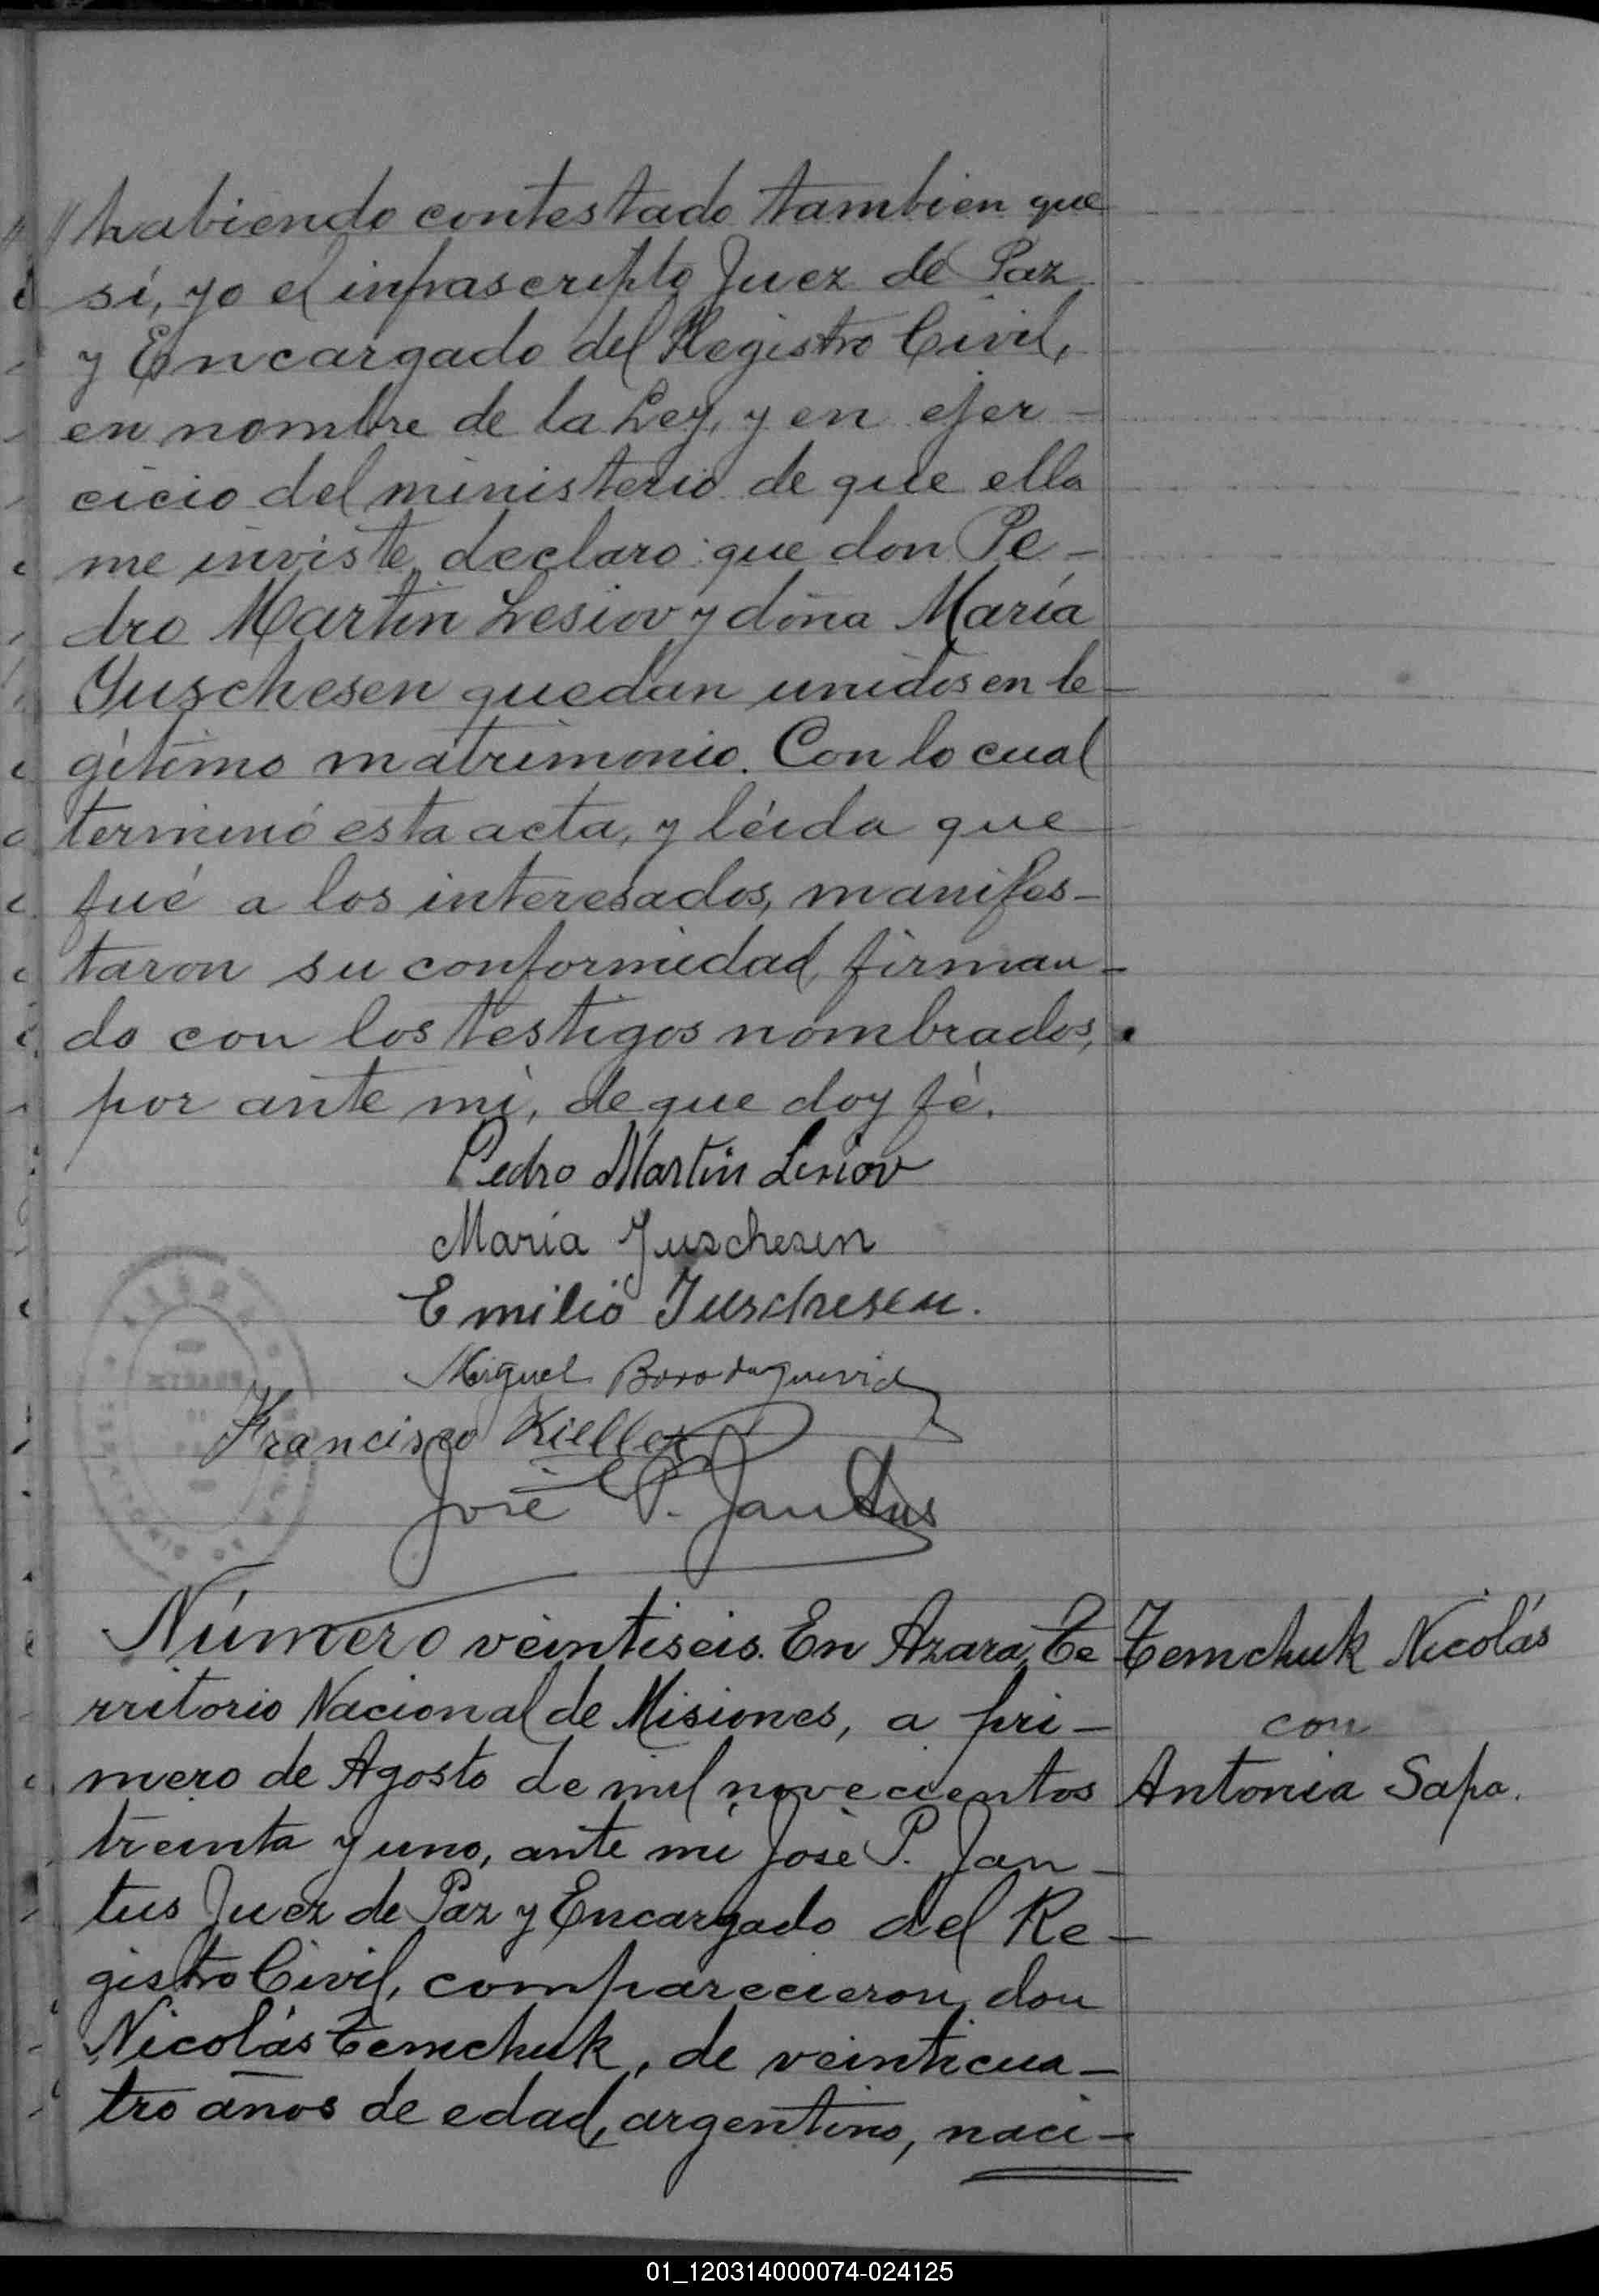 "habiendo contestado tambien que
sí, yo el infrascripto Juez de Paz
y Encargado del Registro Civil,
en nombre de la Ley, y en ejer-
cicio del ministerio de que ella
me inviste, declaro: que don Pe-
dro Martin Lesiov y doña María
Yuschesen quedan unidos en le-
gítimo matrimonio. Con lo cual
terminó esta acta, y léida que
fué a los interesados, manifes-
taron su conformidad, firman-
do con los testigos nombrados,
por ante mi, de que doy fé.
Pedro Martin Lesiov
María Juschesen
Emilio Juschesen.
Miguel
Francisco Kieller
José P. Jantus
Número veintiseis. En Azara, Te
rritorio Nacional de Misiones, a pri-
mero de Agosto de mil novecientos
treinta y uno, ante mi José P. Jan-
tus Juez de Paz y Encargado del Re-
gistro Civil, comparecieron, don
Nicolás Temchuk, de veinticua-
tro años de edad, argentino, naci-
Temchuk Nicolás
con
Antonia Sapa.
01_120314000074-024125